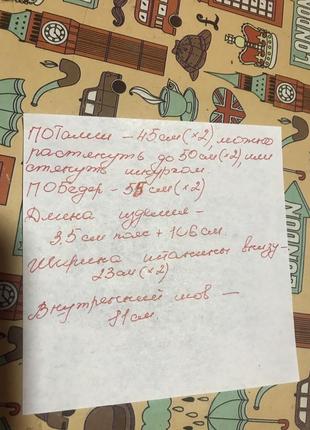 По талии – 45см (×2), можно
растянуть до 50см (×2), или
стянуть шнурком.
По бедер – 55см (×2)
Длина изделия –
3,5 см пояс + 106см.
Ширина штанины внизу –
23см (×2)
Внутренний шов –
81см.
LONDON
LONDON